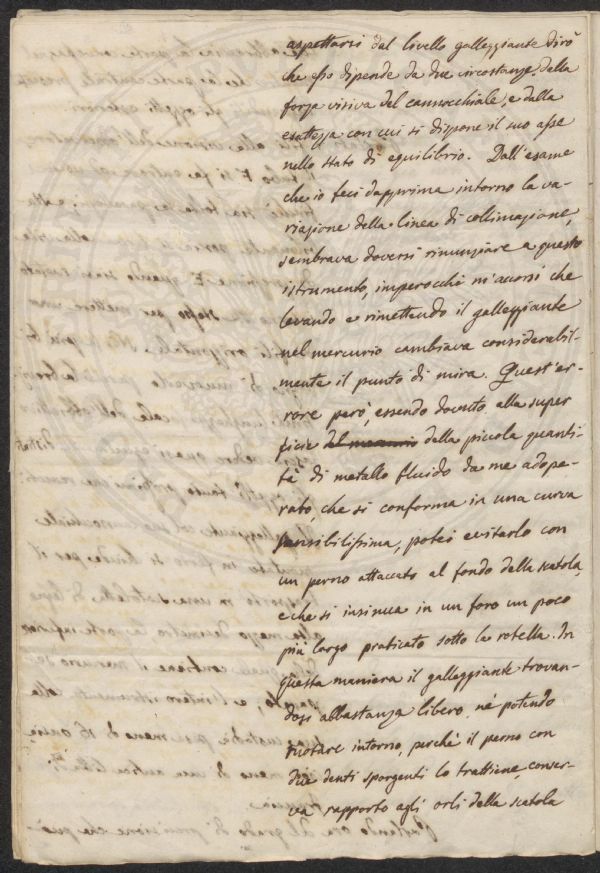 aspettarsi dal livello galleggiante dirò
che esso dipende da due circostanze, della
forza visiva del cannocchiale, e dalla
esattezza con cui si dispone il suo asse
nello stato di equilibrio. Dall'esame
che io feci dapprima intorno la va-
riazione della linea di collimazione,
sembrava doversi rinunziare a questo
istrumento, imperocchè m'accorsi che
levando e rimettendo il galleggiante
nel mercurio cambiava considerabil-
mente il punto di mira. Quest'er-
rore però, essendo dovuto alla super
ficie del mercurio della piccola quanti-
tà di metallo fluido da me adope-
rato, che si conforma in una curva
sensibilissima, potei evitarlo con
un perno attaccato al fondo della scatola,
e che si insinua in un foro un poco
più largo praticato sotto la rotella. In
questa maniera il galleggiante trovan-
dosi abbastanza libero, nè potendo
ruotare intorno, perchè il perno con
due denti sporgenti lo trattiene, conser-
va rapporto agli orli della scatola